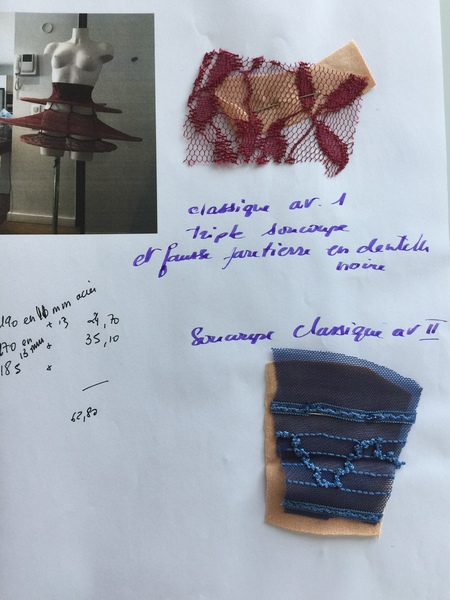 classique av. 1
triple soucoupe
et fausse jaretierre en dentelle
noire
190 en 10 mm acier
+ 13 24,70
270 en
13 mm + 35,10
185 +
62,80
Soucoupe classique av II